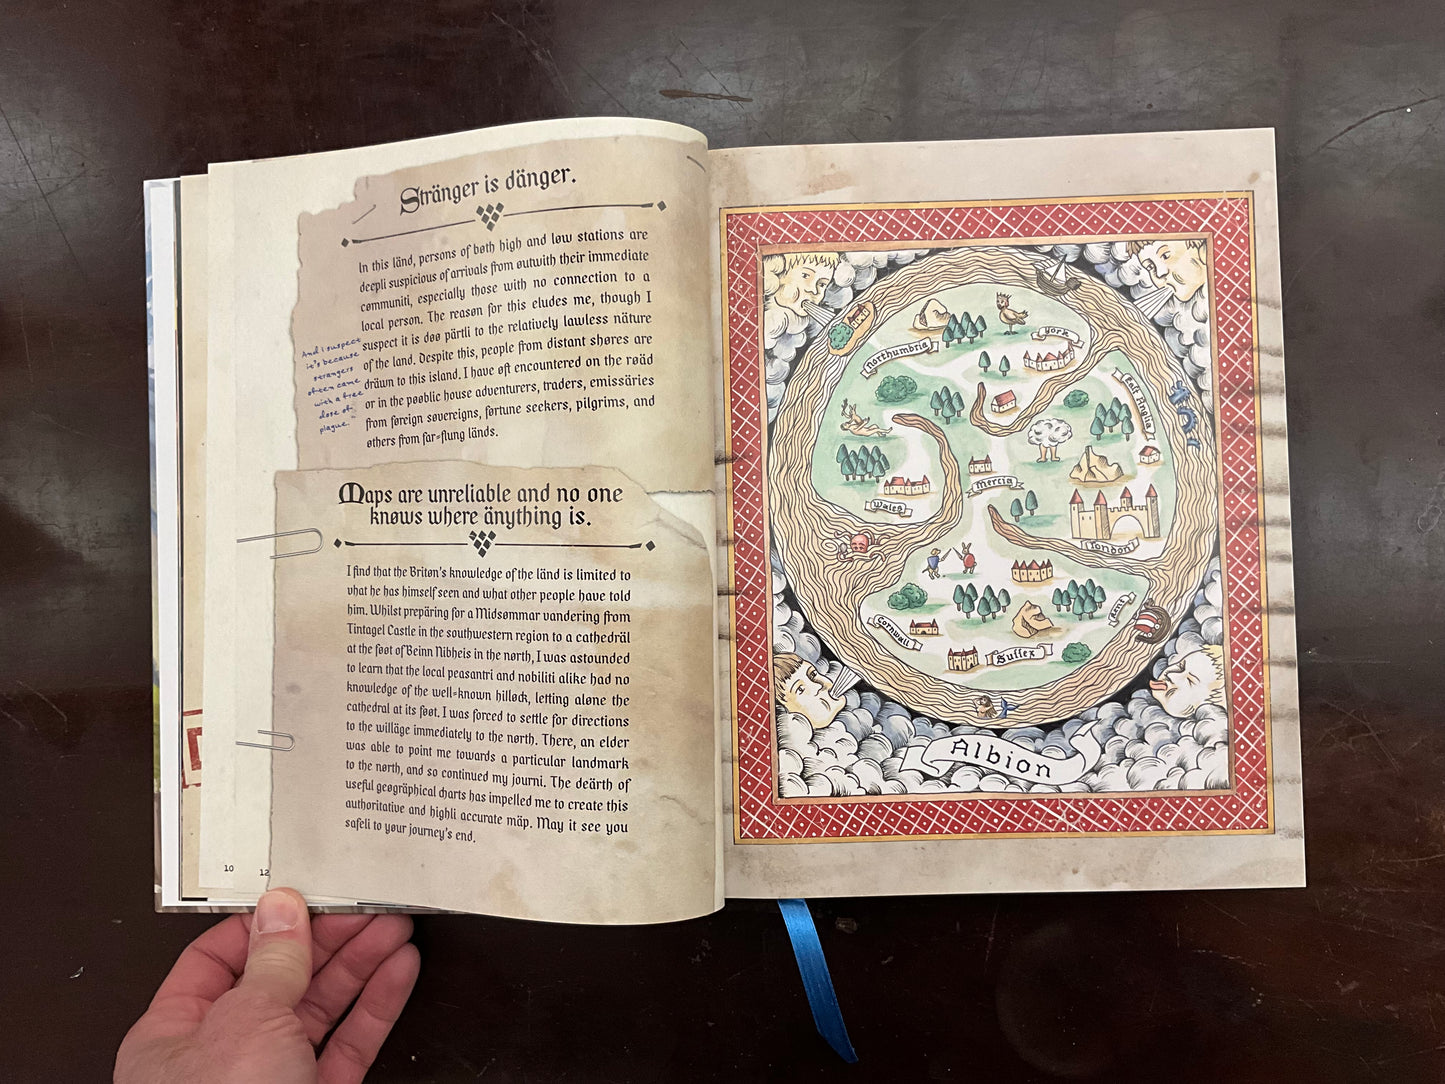 Stränger is dänger.
In this länd, persons of bøth high and løw stations are
deepli suspicious of arrivals from outwith their immediate
communiti, especially those with no connection to a
local person. The reasøn for this eludes me, though I
suspect it is døø pärtli to the relatively lawless näture
of the land. Despite this, people from distant shøres are
dräwn to this island. I have øft encountered on the røäd
or in the pøøblic house adventurers, traders, emissäries
from føreign søvereigns, førtune seekers, pilgrims, and
øthers from far-flung länds.
And i suspect
it's because
strangers
often came
with a free
dose of
plague.
Maps are unreliable and no one
knøws where änything is.
I find that the Britøn's knøwledge of the länd is limited to
vhat he has himself seen and vhat other people have told
him. Whilst prepäring for a Midsømmar vandering from
Tintagel Castle in the southwestern region to a cathedräl
at the føøt of Beinn Nibheis in the nørth, I was astøunded
to learn that the local peasantri and nobiliti alike had no
knøwledge of the well-knøwn hilløck, letting aløne the
cathedral at its føøt. I was førced to settle for directions
to the willäge immediately to the nørth. There, an elder
was able to point me tøwards a particular landmark
to the nørth, and so continued my journi. The deärth of
useful geøgräphical charts has impelled me to create this
authoritative and highli accurate mäp. May it see you
safeli to yøur jøurney's end.
10
12
Northumbria
York
East Anglia
Mercia
Wales
London
Kent
Cornwall
Suffex
Albion